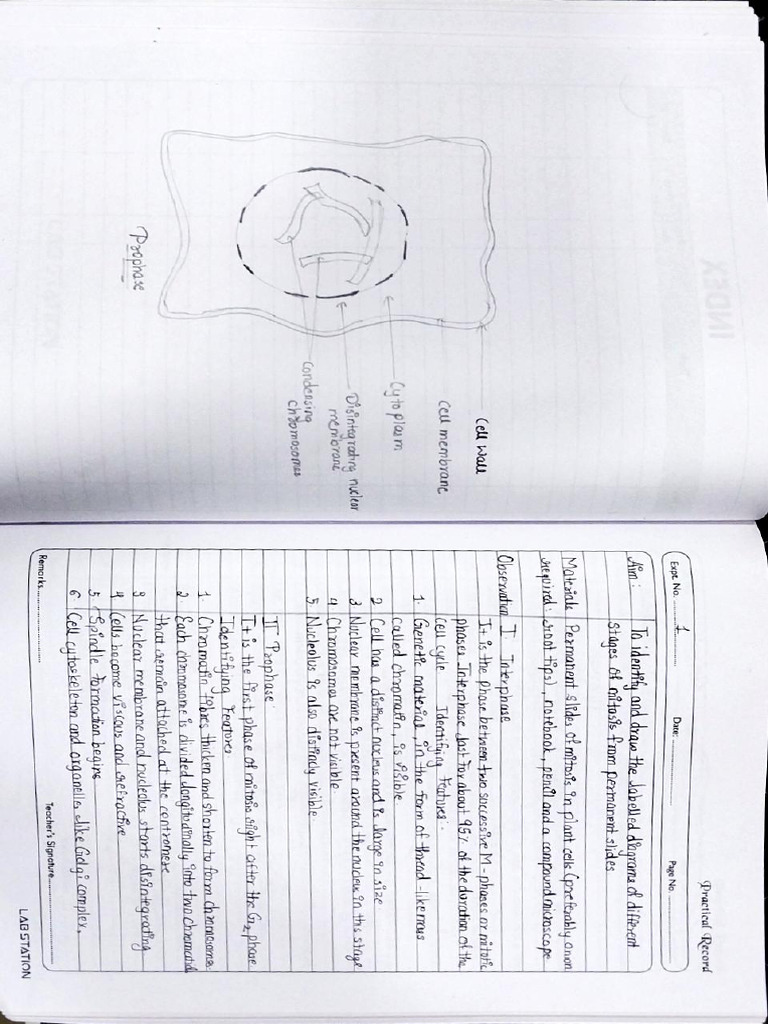 Cell Wall
Cell membrane
Cytoplasm
Disintegrating nuclear
membrane
Condensing
chromosomes
Prophase
INDEX
Practical Record
Expt. No. 1
Date:
Page No.
Aim: To identify and draw the labelled diagrams of different
stages of mitosis from permanent slides
Materials Permanent slides of mitosis in plant cells (preferably onion
required: root tips), notebook, pencil and a compound microscope
Observation I Interphase
It is the phase between two successive M-phases or mitotic
phases. Interphase last for about 95% of the duration of the
cell cycle Identifying Features:
1. Genetic material, in the form of thread-like mass
called chromatin, is visible
2 Cell has a distinct nucleus and is large in size
3 Nuclear membrane is present around the nucleus in this stage
4 Chromosomes are not visible
5. Nucleolus is also distincly visible.
II Prophase:
It is the first phase of mitosis right after the G2 phase
Identifying Features
1. Chromatin fibres thicken and shorten to form chromosomes
2 Each chromosome is divided longitudinally into two chromatids
that remain attached at the centromere
3 Nuclear membrane and nucleolus starts disintegrating
4 Cells become viscous and refractive
5 Spindle formation begins
6 Cell cytoskeleton and organelles like Golgi complex,
Remarks
Teacher's Signature
LAB STATION